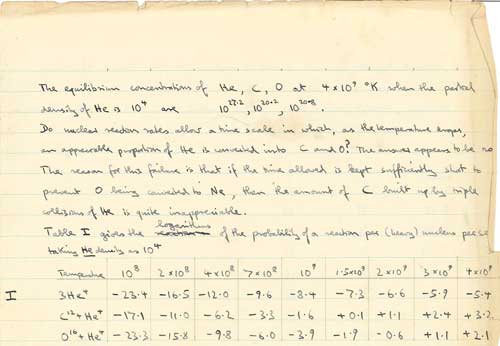 The equilibrium concentrations of He, C, O at 4×10⁹ °K when the partial
density of He is 10⁴ are 10^27.2, 10^20.2, 10^20.8.
Do nuclear reaction rates allow a time scale in which, as the temperature drops,
an appreciable proportion of He is converted into C and O? The answer appears to be no
The reason for this failure is that if the time allowed is kept sufficiently short to
prevent O being converted to Ne, then the amount of C built up by triple
collisions of He is quite inappreciable.
Table I gives the logarithms of the probability of a reaction per (heavy) nucleus per sec
taking He density as 10⁴
Temperature 10⁸ 2×10⁸ 4×10⁸ 7×10⁸ 10⁹ 1.5×10⁹ 2×10⁹ 3×10⁹ 4×10⁹
I 3He⁴ -23.4 -16.5 -12.0 -9.6 -8.4 -7.3 -6.6 -5.9 -5.4
C¹²+He⁴ -17.1 -11.0 -6.2 -3.3 -1.6 +0.1 +1.1 +2.4 +3.2
O¹⁶+He⁴ -23.3 -15.8 -9.8 -6.0 -3.9 -1.9 -0.6 +1.1 +2.1